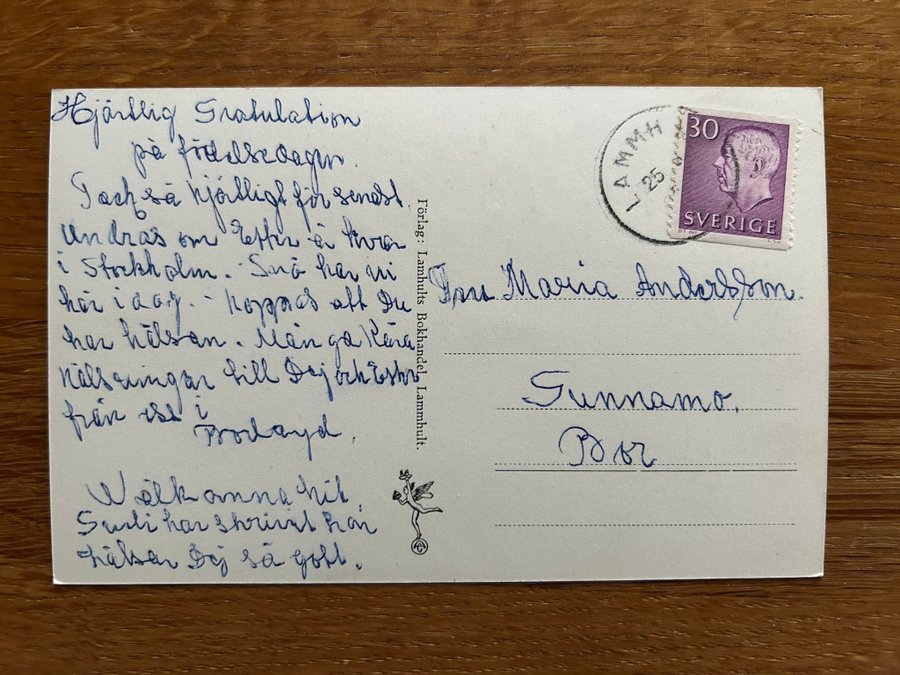 Hjärtlig Gratulation
på födelsedagen.
Tack så hjärtligt för senast.
Undras om Ester är kvar
i Stockholm. Snö har vi
här i dag. - hoppas att Du
har hälsan. Många Kära
hälsningar till Dej och Ester
från oss i
Boda.
Välkomna hit.
har skrivit hon
hälsar Dej så gott.
Förlag: Lamhults Bokhandel, Lammhult.
LAMMH
25
30
SVERIGE
Fru Maria Andersson.
Gunnamo.
Bor